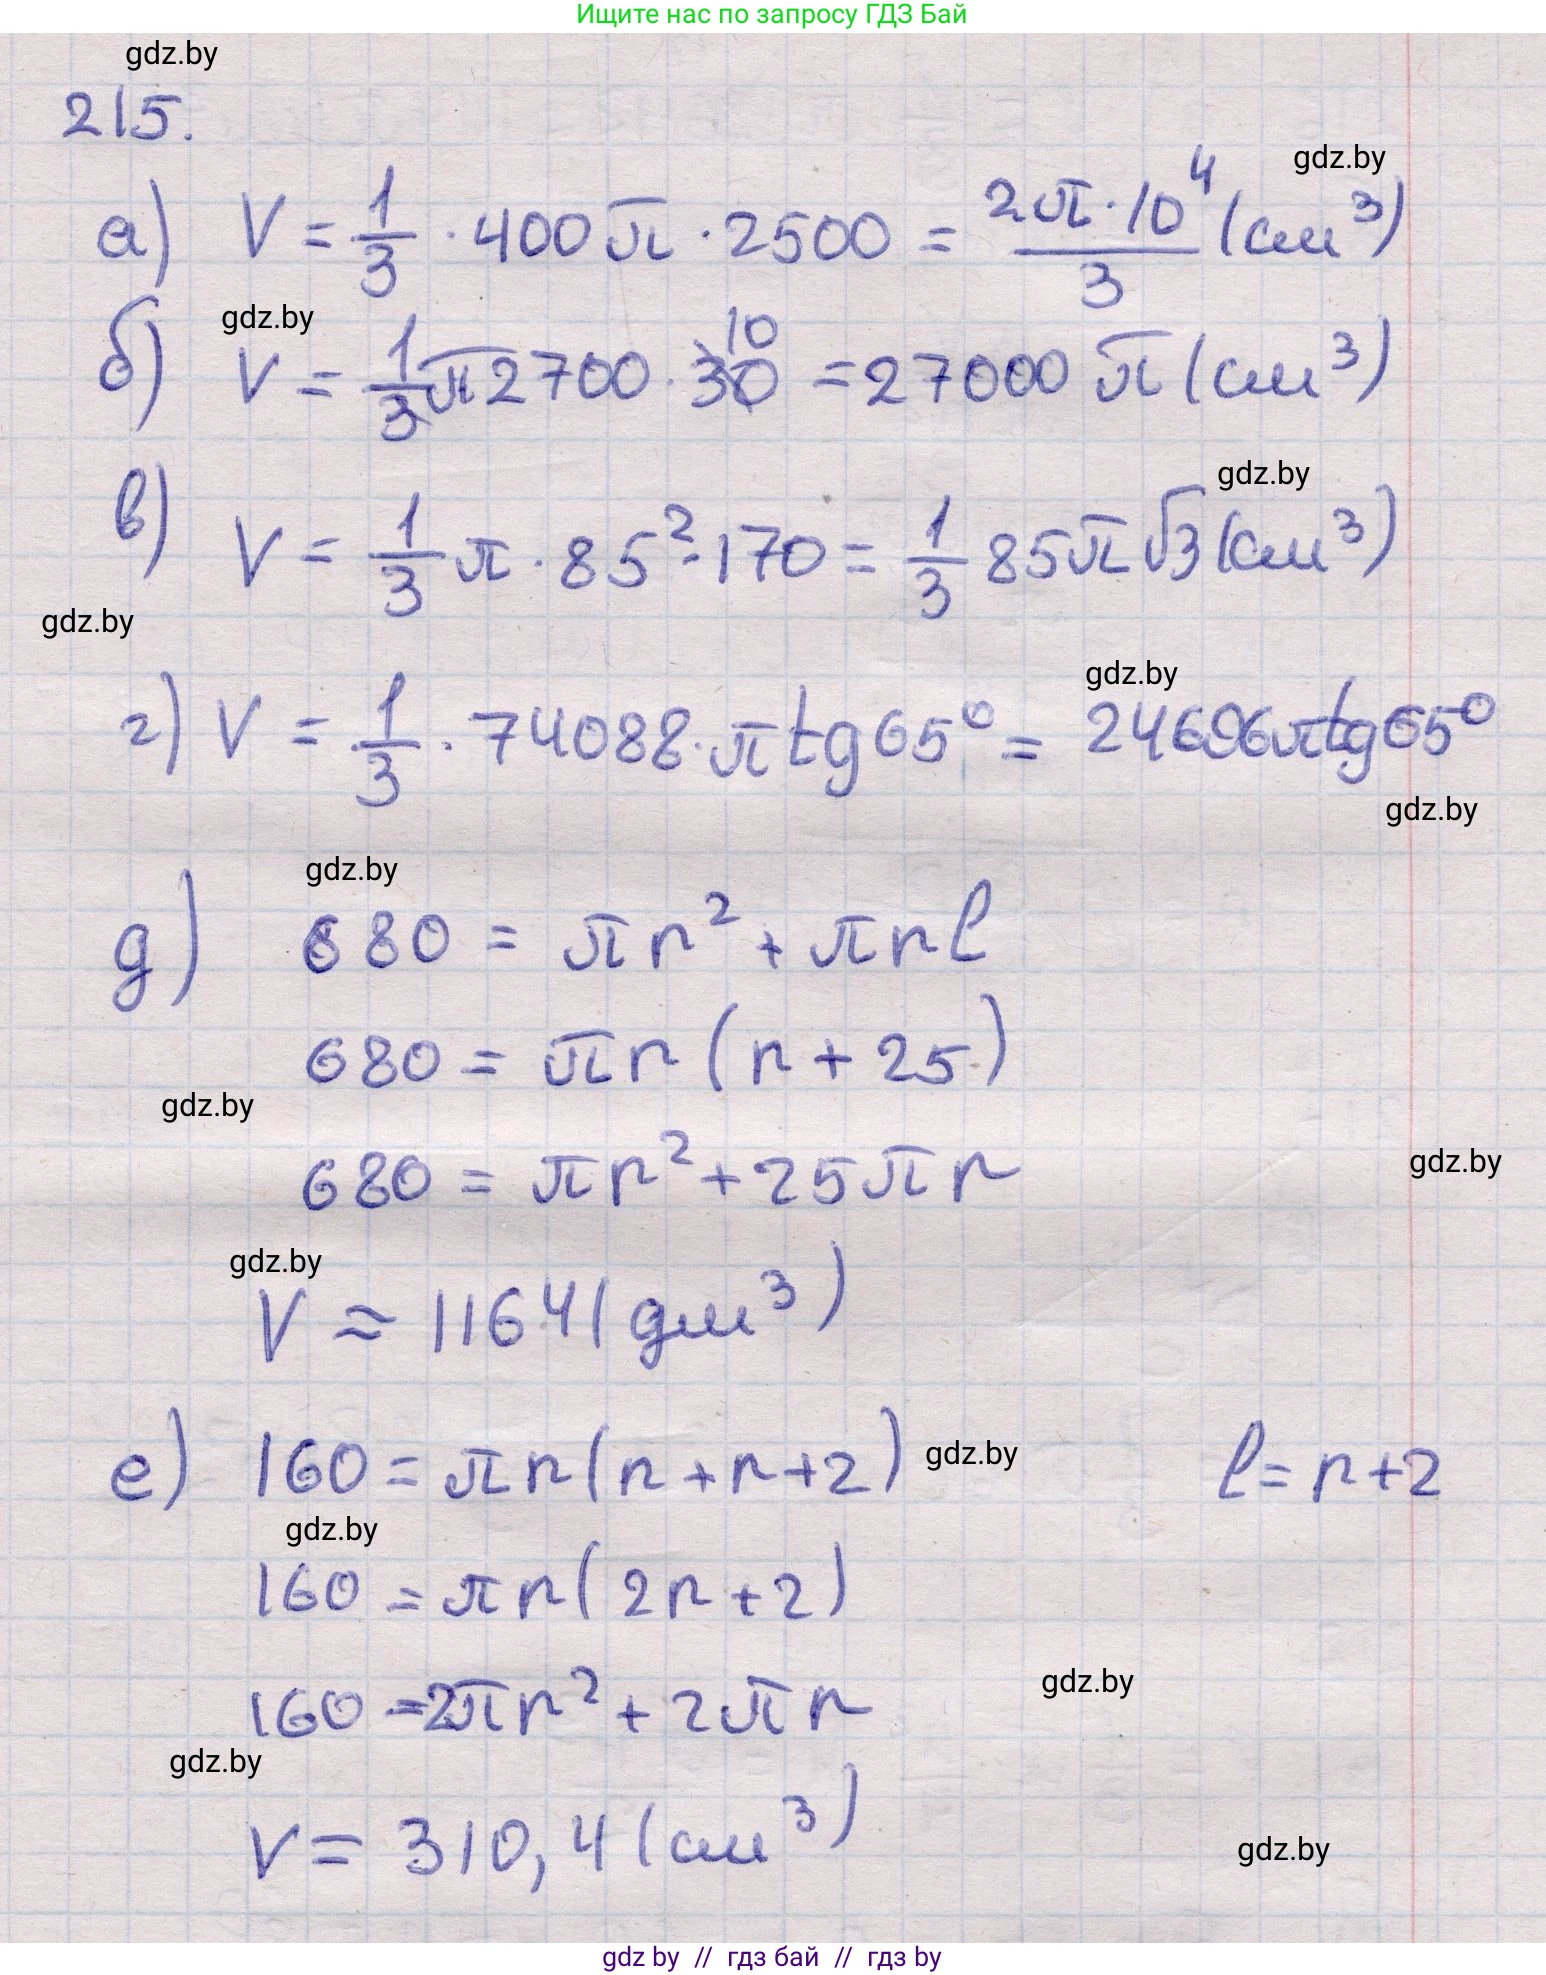 Ищите нас по запросу ГДЗ Бай
gdz.by
215.
gdz.by
а) V = 1/3 · 400π · 2500 = 2π·10⁴/3 (см³)
gdz.by
10
б) V = 1/3 π2700 · 30 = 27000 π (см³)
gdz.by
в) V = 1/3 π · 85² · 170 = 1/3 85π√3 (см³)
gdz.by
gdz.by
г) V = 1/3 · 74088 · π tg65⁰ = 24696πtg65⁰
gdz.by
gdz.by
д) 680 = πr² + πrl
680 = πr (r + 25)
gdz.by
680 = πr² + 25πr
gdz.by
gdz.by
V ≈ 1164 (дм³)
е) 160 = πr(r + r + 2) gdz.by l = r + 2
gdz.by
160 = πr(2r + 2)
gdz.by
160 = 2πr² + 2πr
gdz.by
V = 310,4 (см³)
gdz.by
gdz by // гдз бай // гдз by